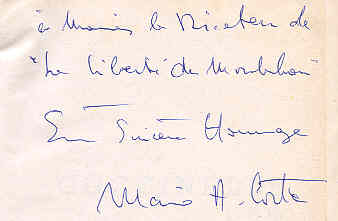 à Monsieur le Directeur de
"La Liberté du Morbihan"
En Sincère Hommage
Mario A. Costa